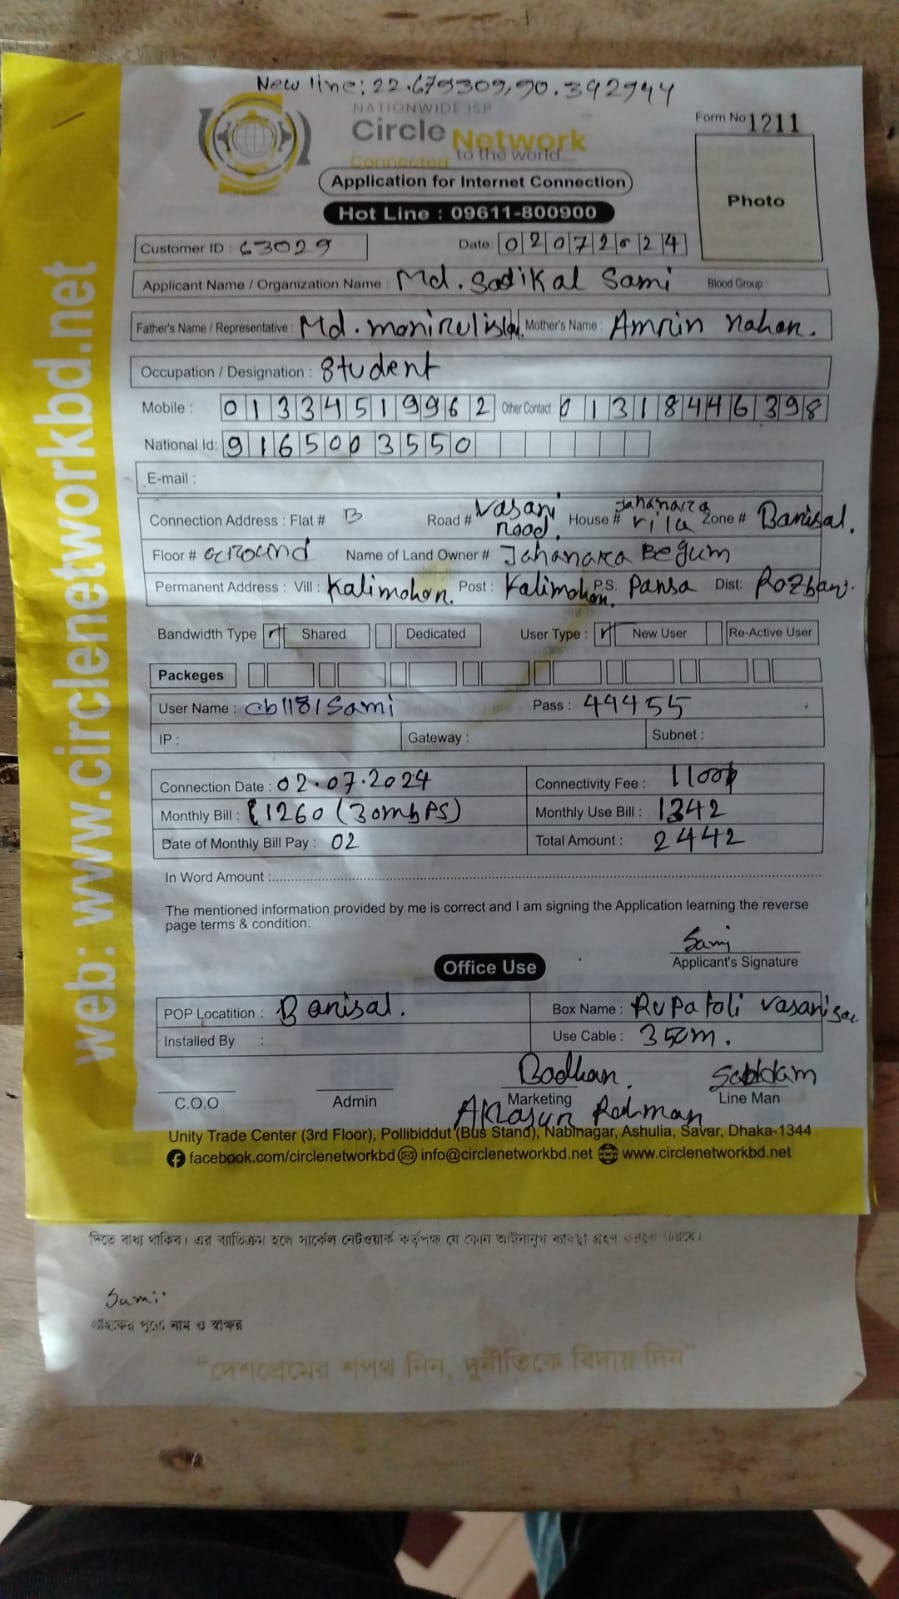 New line: 22.679309,90.392944
NATIONWIDE ISP
Circle Network
Connected to the world
Form No 1211
Application for Internet Connection
Photo
Hot Line : 09611-800900
Customer ID : 63029 Date: 02072024
Applicant Name / Organization Name : Md. Sadikal Sami Blood Group
Father's Name / Representative : Md. monirulislam Mother's Name : Amrin nahar.
Occupation / Designation : Student
Mobile : 01334519962 Other Contact 01318446398
National Id: 9165003550
E-mail :
Connection Address : Flat # B Road # vasani road. House # Jahanara vila Zone # Barisal.
Floor # Ground Name of Land Owner # Jahanara Begum
Permanent Address : Vill : Kalimohor. Post : Kalimohor. P.S. Pansa Dist:
Bandwidth Type Shared Dedicated User Type : New User Re-Active User
Packeges
User Name : cb1181Sami Pass : 49455
IP : Gateway : Subnet :
Connection Date : 02.07.2024 Connectivity Fee : 1100
Monthly Bill : 1260 (30mbps) Monthly Use Bill : 1342
Date of Monthly Bill Pay : 02 Total Amount : 2442
In Word Amount :
The mentioned information provided by me is correct and I am signing the Application learning the reverse
page terms & condition.
Sami
Applicant's Signature
Office Use
POP Locatition : Barisal. Box Name : Rupatoli vasani
Installed By : Use Cable : 350m.
Saddam
C.O.O Admin Marketing Line Man
Rahman
Unity Trade Center (3rd Floor), Pollibiddut (Bus Stand), Nabinagar, Ashulia, Savar, Dhaka-1344
facebook.com/circlenetworkbd info@circlenetworkbd.net www.circlenetworkbd.net
web: www.circlenetworkbd.net
দিতে বাধ্য থাকিব। এর ব্যতিক্রম হলে সার্কেল নেটওয়ার্ক কর্তৃপক্ষ যে কোন আইনানুগ ব্যবস্থা গ্রহণ করতে পারবে।
Sami
গ্রাহকের পূর্ণ নাম ও স্বাক্ষর
"দেশপ্রেমের শপথ নিন, দুর্নীতিকে বিদায় দিন"